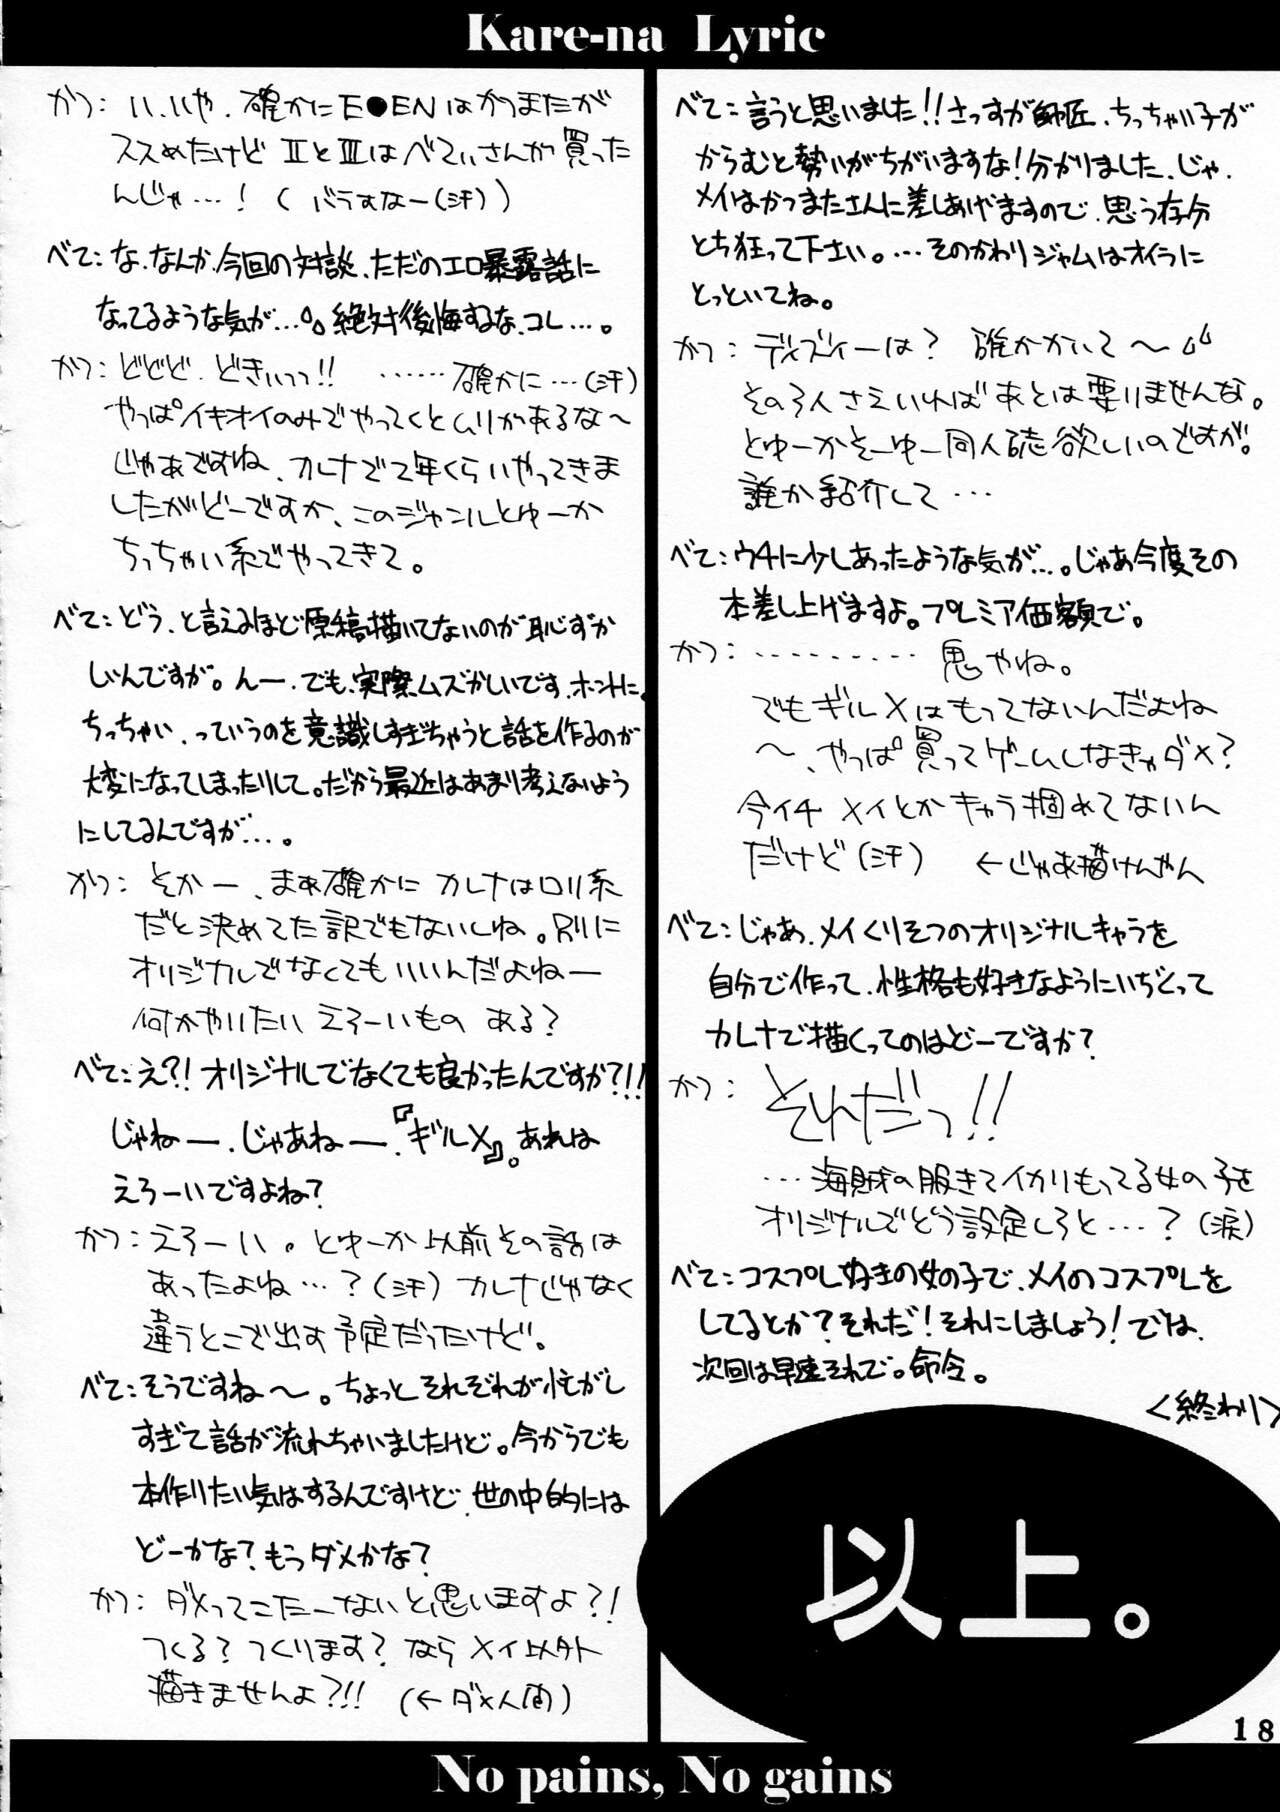 Kare-na Lyric
かつ: い、いや、確かにE●ENはかつまたが
ススめたけどⅡとⅢはべてぃさんが買った
んじゃ…! (バラすなー(汗))
べて: な、なんか、今回の対談、ただのエロ暴露話に
なってるような気が…。絶対後悔するな、コレ…。
かつ: どどど、どきぃっっ!! ……確かに…(汗)
やっぱイキオイのみでやってくとムリがあるな〜
じゃあですね、カレナで1年くらいやってきま
したがどーですか、このジャンルとゆーか
ちっちゃい系でやってきて。
べて: どう、と言えるほど原稿描いてないのが恥ずか
しいんですが。んー、でも、実際ムズかしいです、ホントに。
ちっちゃい、っていうのを意識しすぎちゃうと話を作るのが
大変になってしまったりして。だから最近はあまり考えないよう
にしてるんですが…。
かつ: そかー、まぁ確かにカレナはロリ系
だと決めてた訳でもないしね。別に
オリジナルでなくてもいいんだよねー
何かやりたいえろーいものある?
べて: え?! オリジナルでなくても良かったんですか?!!
じゃねー、じゃあねー、『ギルX』。あれは
えろーいですよね?
かつ: えろーい。とゆーか以前その話は
あったよね…?(汗) カレナじゃなく
違うとこで出す予定だったけど。
べて: そうですね〜。ちょっとそれぞれが忙がし
すぎて話が流れちゃいましたけど。今からでも
本作りたい気はするんですけど、世の中的には
どーかな?もうダメかな?
かつ: ダメってこたーないと思いますよ?!
つくる?つくります?ならメイ以外
描きませんよ?!! (←ダメ人間)
べて: 言うと思いました!!さっすが師匠、ちっちゃい子が
からむと勢いがちがいますな!分かりました、じゃ、
メイはかつまたさんに差しあげますので、思う存分
とち狂って下さい。…そのかわりジャムはオイラに
とっといてね。
かつ: ディズィーは? 誰かかいて〜
その3人さえいればあとは要りませんな。
とゆーかそーゆー同人誌欲しいのですが。
誰か紹介して…
べて: ウチに少しあったような気が…。じゃあ今度その
本差し上げますよ。プレミア価額で。
かつ: ……… 鬼やね。
でもギルXはもってないんだよね
〜、やっぱ買ってゲームしなきゃダメ?
今イチメイとかキャラ掴めてないん
だけど(汗) ←じゃあ描けんやん
べて: じゃあ、メイくりそつのオリジナルキャラを
自分で作って、性格も好きなようにいぢくって
カレナで描くってのはどーですか?
かつ: それだっ!!
…海賊の服きてイカリもってる女の子を
オリジナルでどう設定しろと…?(涙)
べて: コスプレ好きの女の子で、メイのコスプレを
してるとか?それだ!それにしましょう!では、
次回は早速それで。命令。
<終わり>
以上。
18
No pains, No gains